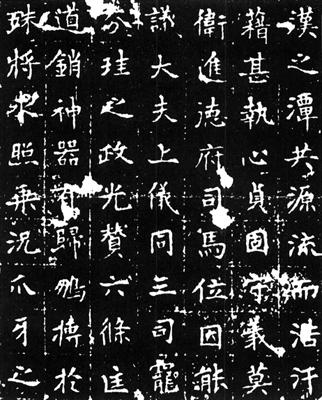 漢之潭共源流而浩汗
藉甚執心貞固守義莫
衛進德府司馬位因能
議大夫上儀同三司寵
珪之政光贊六條匡
道銷神器有歸鵬搏於
珠將求照乘況爪牙之